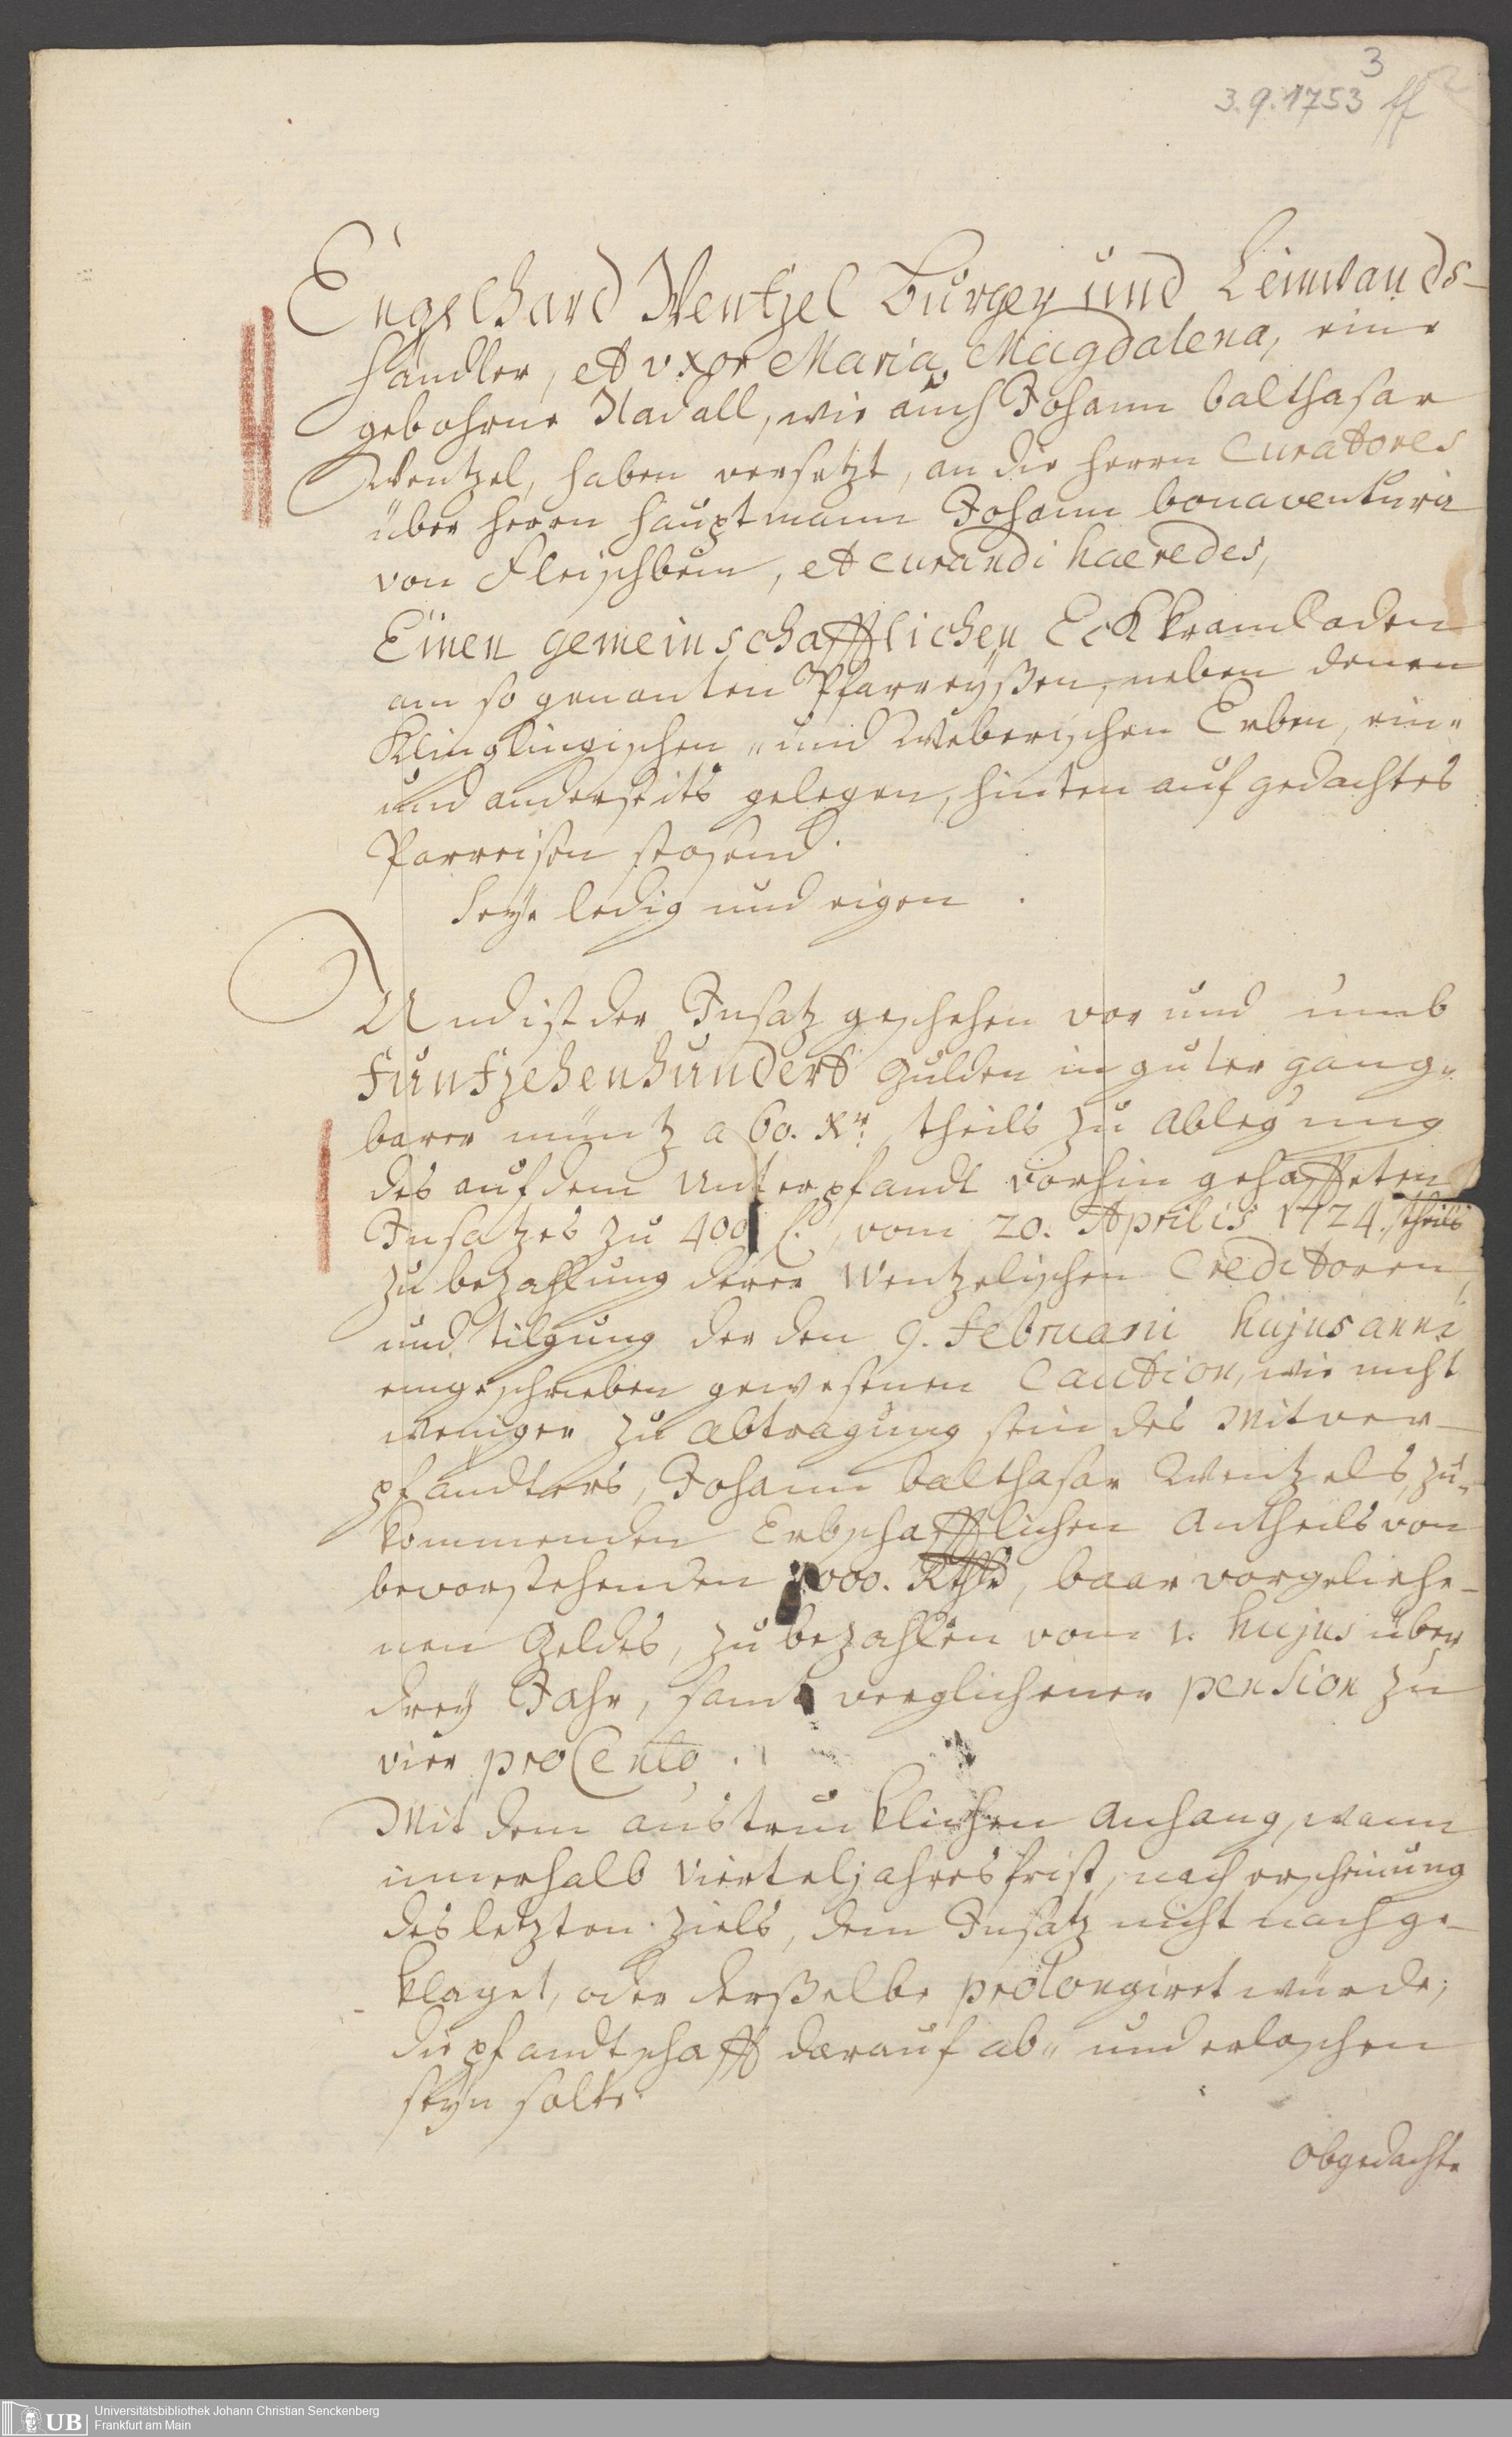 3
3.9.1753 ff
Engelhard Wentzel Burger und Leinwands-
händler, et uxor Maria Magdalena, eine
gebohrne Nadall, wie auch Johann Balthasar
Wentzel, haben versetzt, an die Herrn Curatores
über Herrn Hauptmann Johann Bonaventura
von Fleischbein, et curandi haeredes,
Einen gemeinschafftlichen Eck kramladen
am so genanten Pfarreyßen, neben denen
Klinglingischen „ und Weberischen Erben, ein„
und anderseits gelegen, hinten auf gedachtes
Parreisen stosend.
Seye ledig und eigen.
Und ist der Insatz geschehen vor und umb
Funfzehenhundert Gulden in guter gang„
barer müntz a 60. Xr. theils zu Ablegung
des auf dem Unterpfandt vorhin gehaffteten
Insatzes zu 400 f. vom 20. Aprilis 1724. theils
zu bezahlung derer Wentzelischen Creditoren,
und tilgung der den 9. Februarii hujus anni
eingeschrieben gewesenen Caution, wie nicht
weniger zu Abtragung sein des Mitver-
pfändters, Johann Balthasar Wentzels, zu„
kommenden Erbschafftlichen Antheils von
bevorstehenden 1000. Rthlr, baar vorgeliehe-
nen Geldes, zu bezahlen vom 1. hujus über
drey Jahr, samt verglichener pension zu
vier pro Cento.
Mit dem austrucklichen Anhang, wann
innerhalb Vierteljahresfrist, nach erscheinung
des letzten Ziels, dem Insatz nicht nachge-
klaget, oder derßelbe prolongiret würde;
die pfandtschafft darauf ab„ und erloschen
seyn solte.
Obgedachte
UB
Universitätsbibliothek Johann Christian Senckenberg
Frankfurt am Main